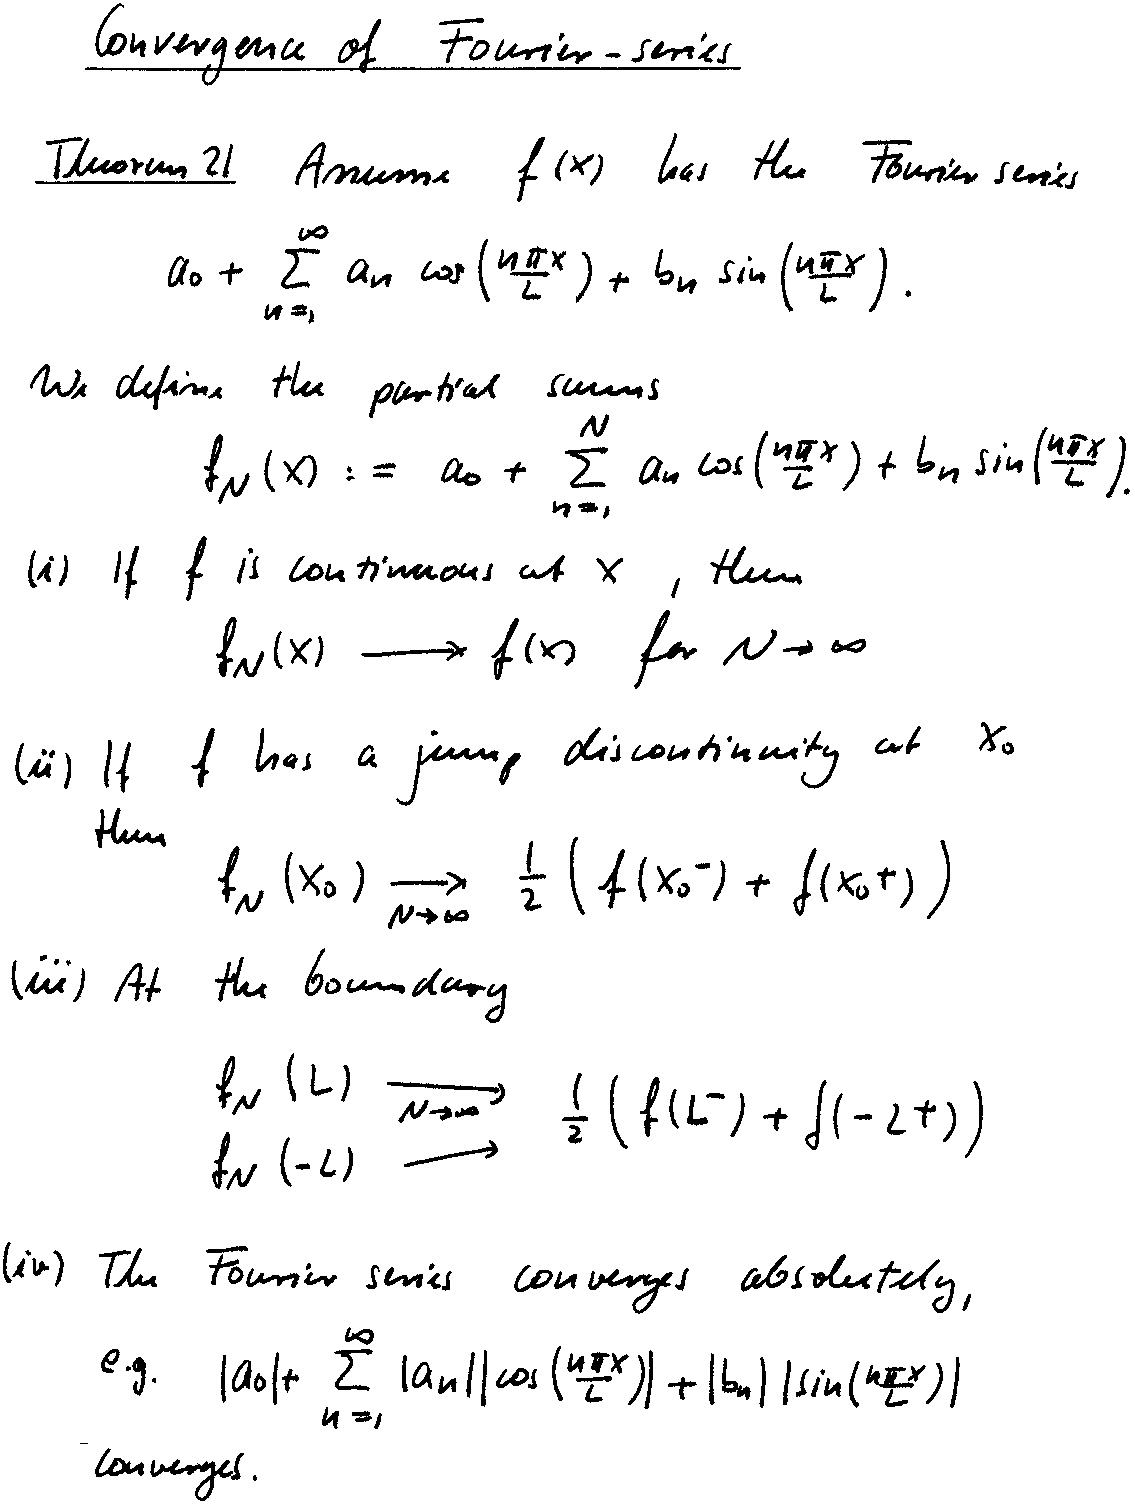 Convergence of Fourier-series
Theorem 21 Assume f(x) has the Fourier series
a₀ + ∑_{n=1}^{∞} aₙ cos(nπx/L) + bₙ sin(nπx/L).
We define the partial sums
f_N(x) := a₀ + ∑_{n=1}^{N} aₙ cos(nπx/L) + bₙ sin(nπx/L).
(i) If f is continuous at x, then
f_N(x) ⟶ f(x) for N→∞
(ii) If f has a jump discontinuity at x₀
then
f_N(x₀) ⟶_{N→∞} 1/2 (f(x₀⁻) + f(x₀+))
(iii) At the boundary
f_N(L) ⟶_{N→∞} 1/2 (f(L⁻) + f(-L+))
f_N(-L) ⟶
(iv) The Fourier series converges absolutely,
e.g. |a₀| + ∑_{n=1}^{∞} |aₙ||cos(nπx/L)| + |bₙ||sin(nπx/L)|
converges.